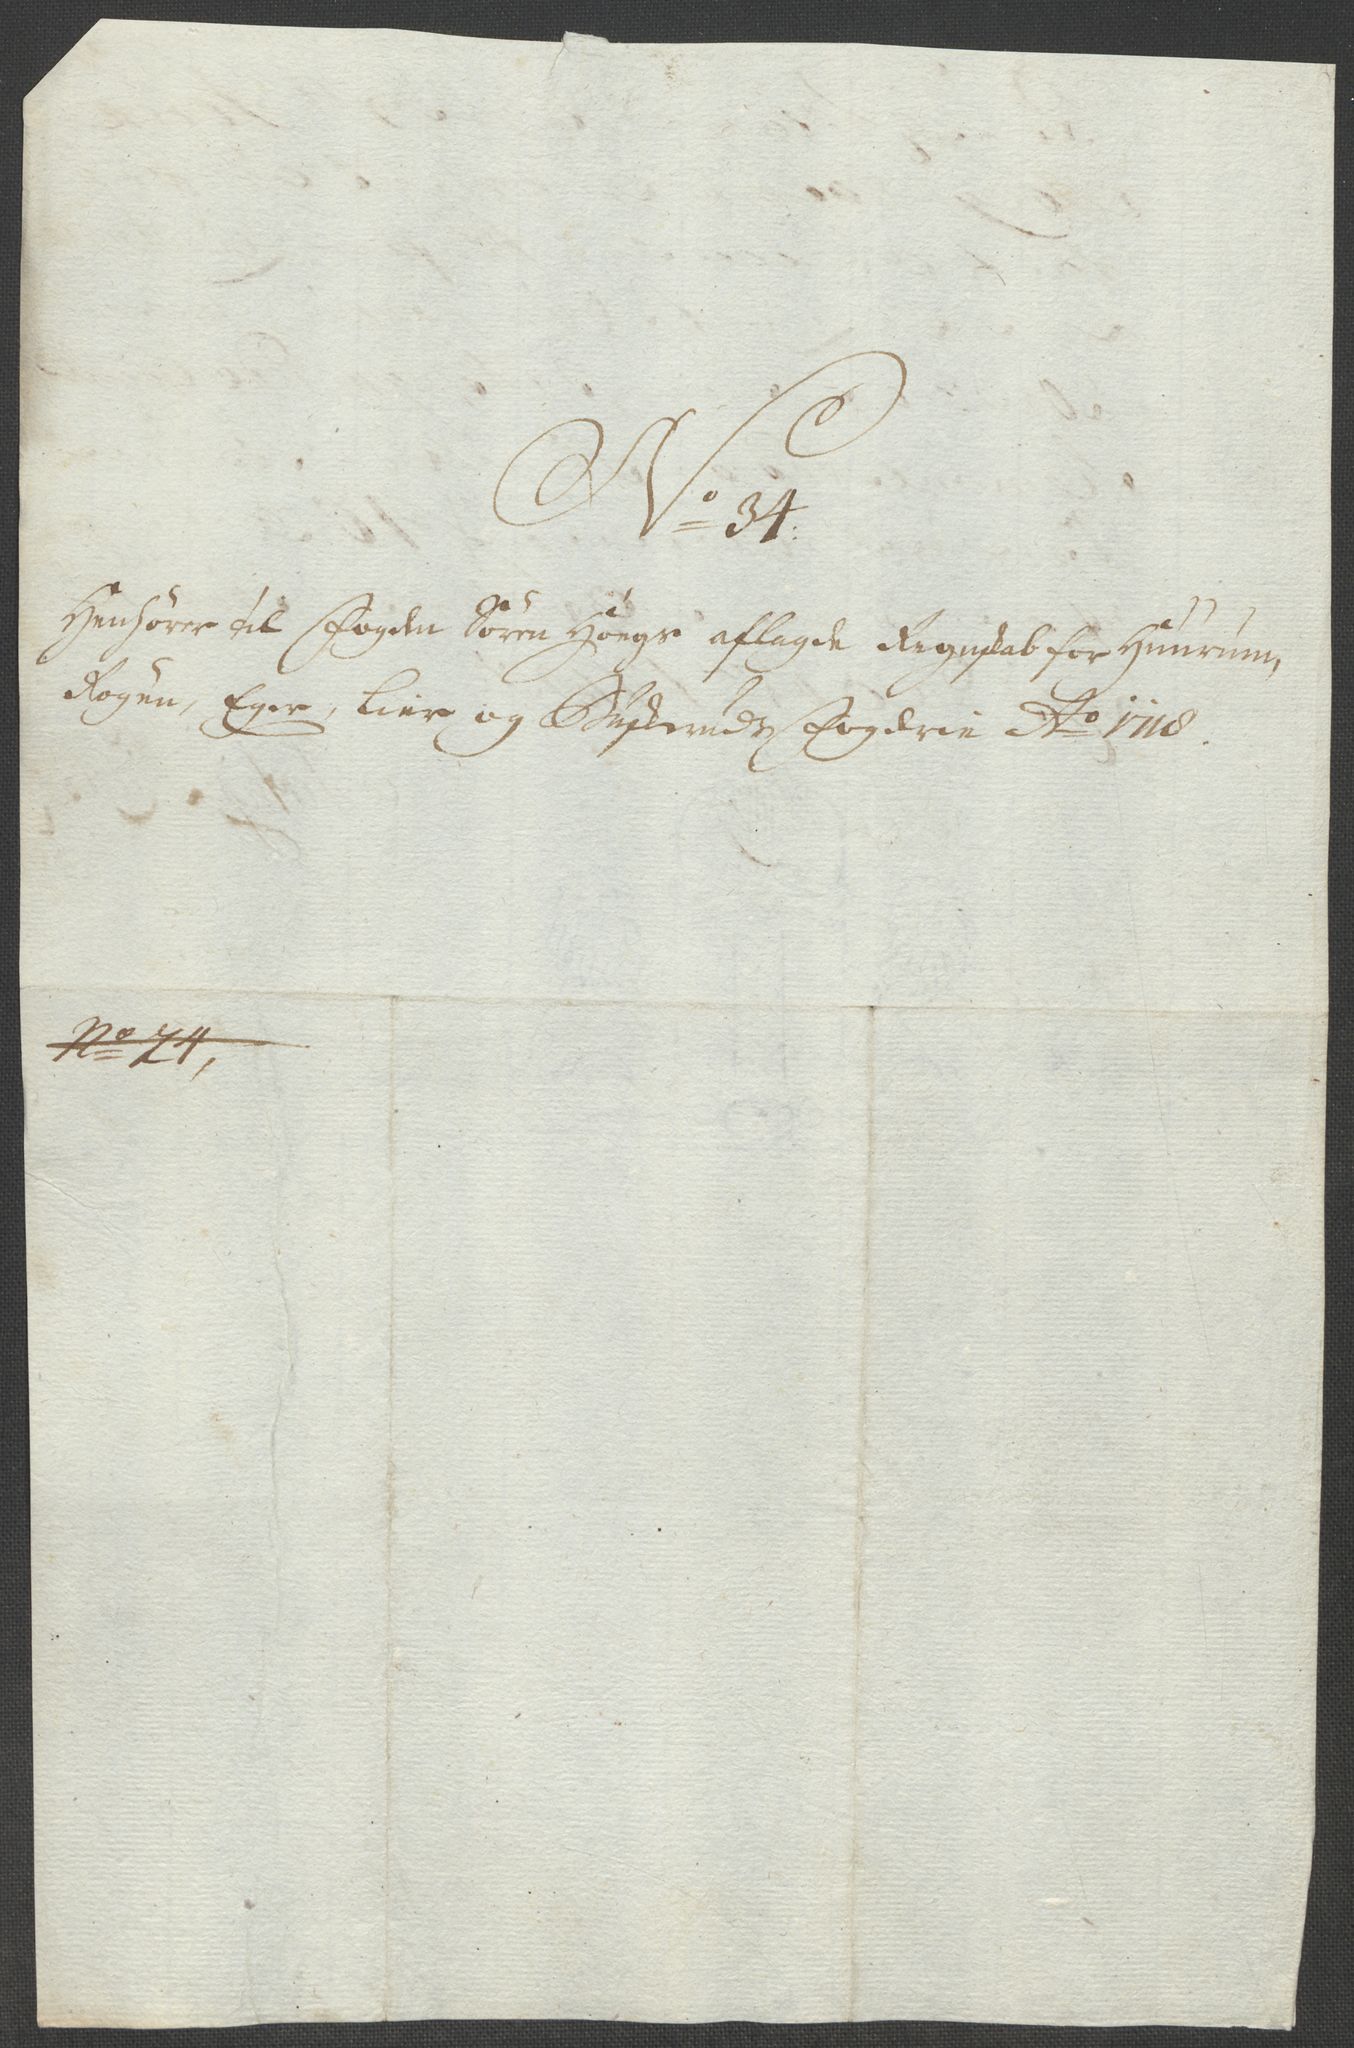 No 34:
Henhörer til Fogden Sören Höegs aflagde Regnskab for Huurum,
Rögen, Eger, Lier og Buskeruds Fogderie Ao 1718.
No 24,